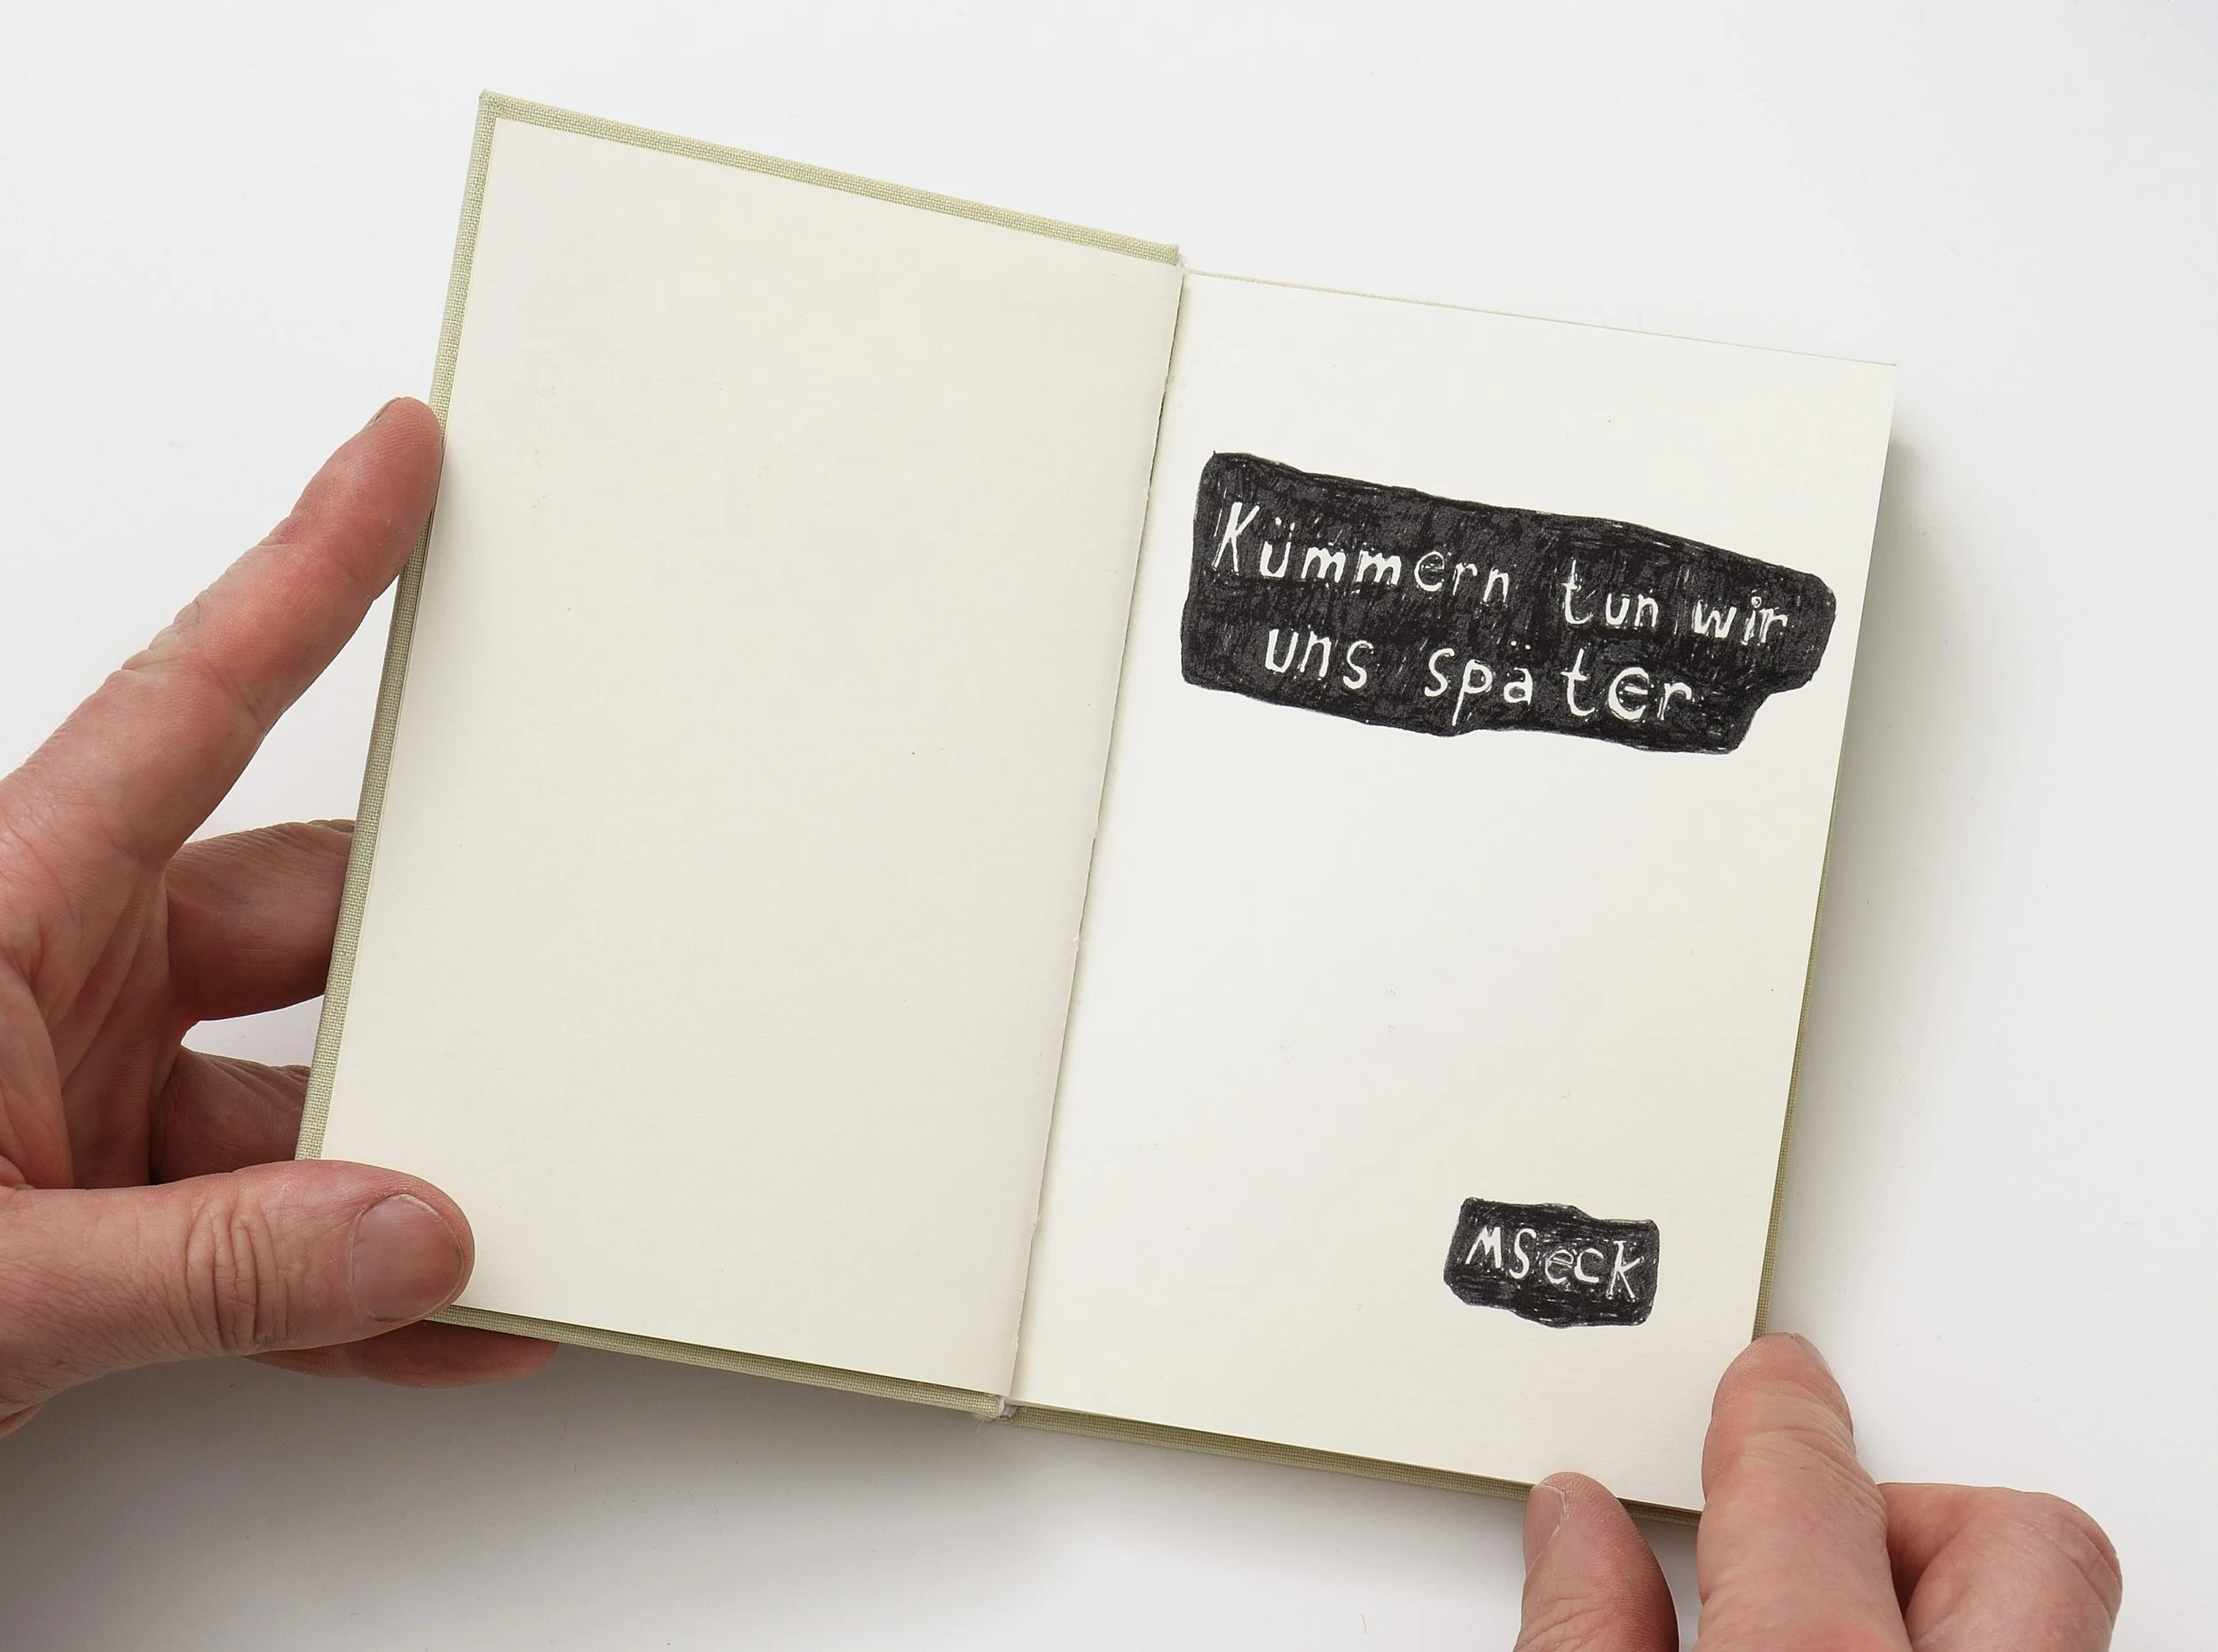 Kümmern tun wir
uns später
MSeck